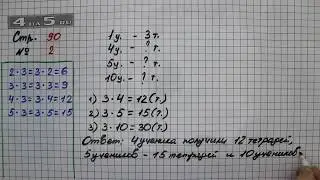 4НА5.RU
Стр. 90
№ 2
2·3=3·2=6
3·3=3·3=9
4·3=3·4=12
5·3=3·5=15
1у. - 3т.
4у. - ? т.
5у. - ? т.
10у. - ? т.
1) 3·4=12(т.)
2) 3·5=15(т.)
3) 3·10=30(т.)
Ответ: 4 ученика получили 12 тетрадей,
5 учеников - 15 тетрадей и 10 учеников-